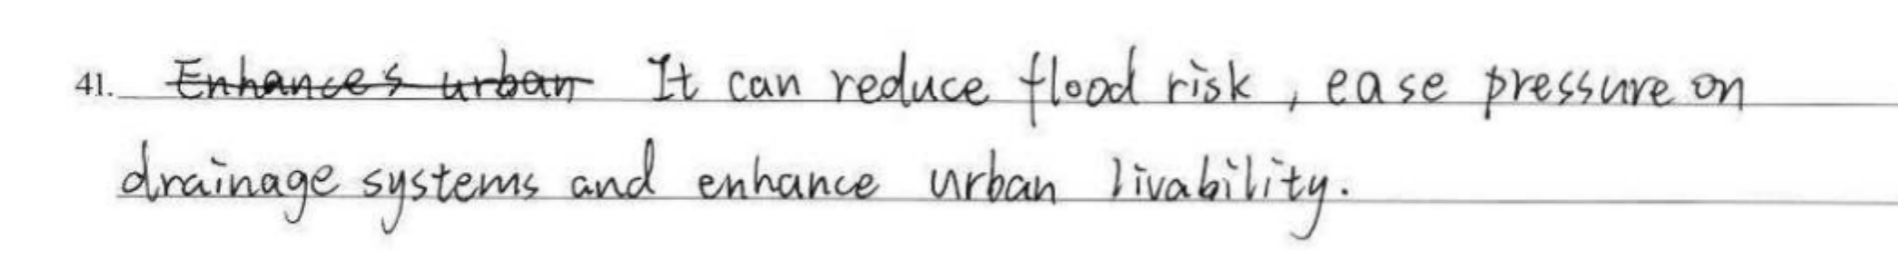 41. Enhances urban It can reduce flood risk, ease pressure on
drainage systems and enhance urban livability.